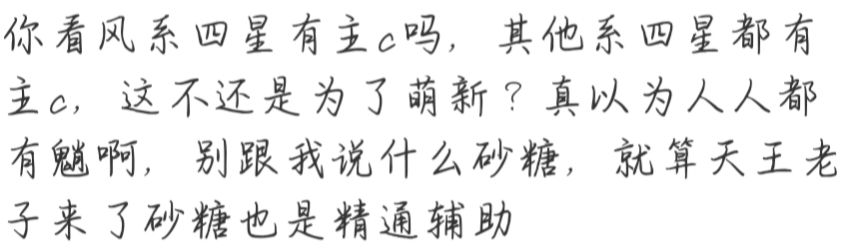 你看风系四星有主c吗，其他系四星都有
主c，这不还是为了萌新？真以为人人都
有魈啊，别跟我说什么砂糖，就算天王老
子来了砂糖也是精通辅助